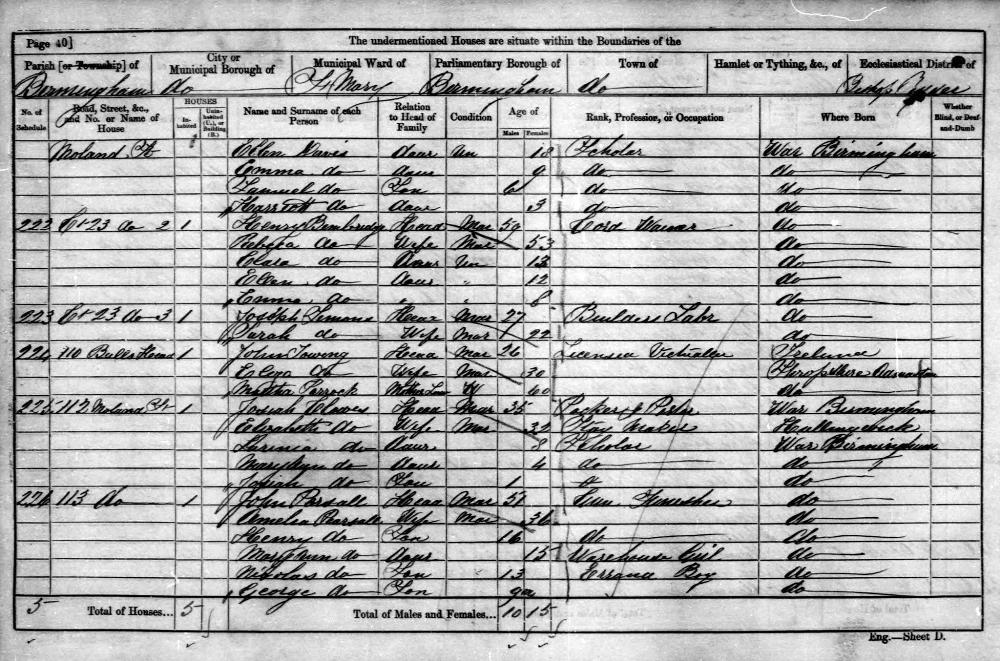 Page 40]
The undermentioned Houses are situate within the Boundaries of the
Parish [or Township] of
City or Municipal Borough of
Municipal Ward of
Parliamentary Borough of
Town of
Hamlet or Tything, &c., of
Ecclesiastical District of
Birmingham do St Mary Birmingham do
No. of Schedule
Road, Street, &c., and No. or Name of House
HOUSES
Inhabited
Uninhabited (U.), or Building (B.)
Name and Surname of each Person
Relation to Head of Family
Condition
Age of
Males
Females
Rank, Profession, or Occupation
Where Born
Whether Blind, or Deaf-and-Dumb
Moland St Ellen Davis Daur Un 18 Scholar War Birmingham
Emma do Daur 9 do do
Samuel do Son 6 do do
Harriott do Daur 3 do do
222 Ct 23 do 2 1 Henry Bembridge Head Mar 59 Cord Wainer do
Rebeca do Wife Mar 53 do
Clara do Daur Un 13 do
Ellen do Daur " 12 do
Emma do " " 8 do
223 Ct 23 do 3 1 Joseph Simons Head Mar 27 Builders Labr do
Sarah do Wife Mar 22 do
224 110 Bulls Head 1 John Towing Head Mar 26 Licensed Victualler Ireland
do Wife Mar 30 Shropshire
Martha Mother Law W 60 do
225 112 Moland St 1 Josiah Clowes Head Mar 35 War Birmingham
Elizabeth do Wife Mar 32
Lavinia do Daur 8 Scholar War Birmingham
do Daur 4 do do
Josiah do Son 1 do
226 113 do 1 John Pearsall Head Mar 57 Gun Finisher do
Amelia Pearsall Wife Mar 36 do
Henry do Son 16 do do
Mary Ann do Daur 15 Warehouse Girl do
Nicholas do Son 13 Errand Boy do
George do Son 9 do
5 Total of Houses... 5 Total of Males and Females... 10 15
Eng.—Sheet D.